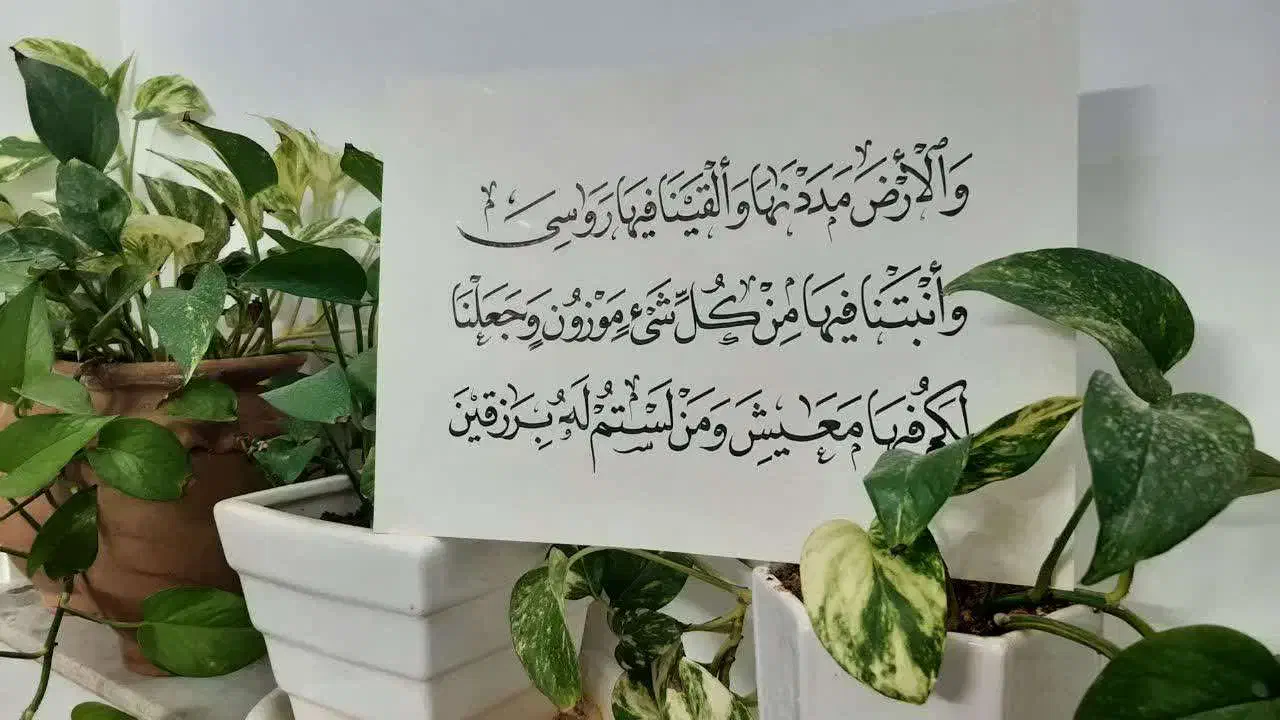 وَالْأَرْضَ مَدَدْنَٰهَا وَأَلْقَيْنَا فِيهَا رَوَٰسِىَ
وَأَنْبَتْنَا فِيهَا مِنْ كُلِّ شَىْءٍ مَوْزُونٍ وَجَعَلْنَا
لَكُمْ فِيهَا مَعَٰيِشَ وَمَنْ لَسْتُمْ لَهُ بِرَٰزِقِينَ